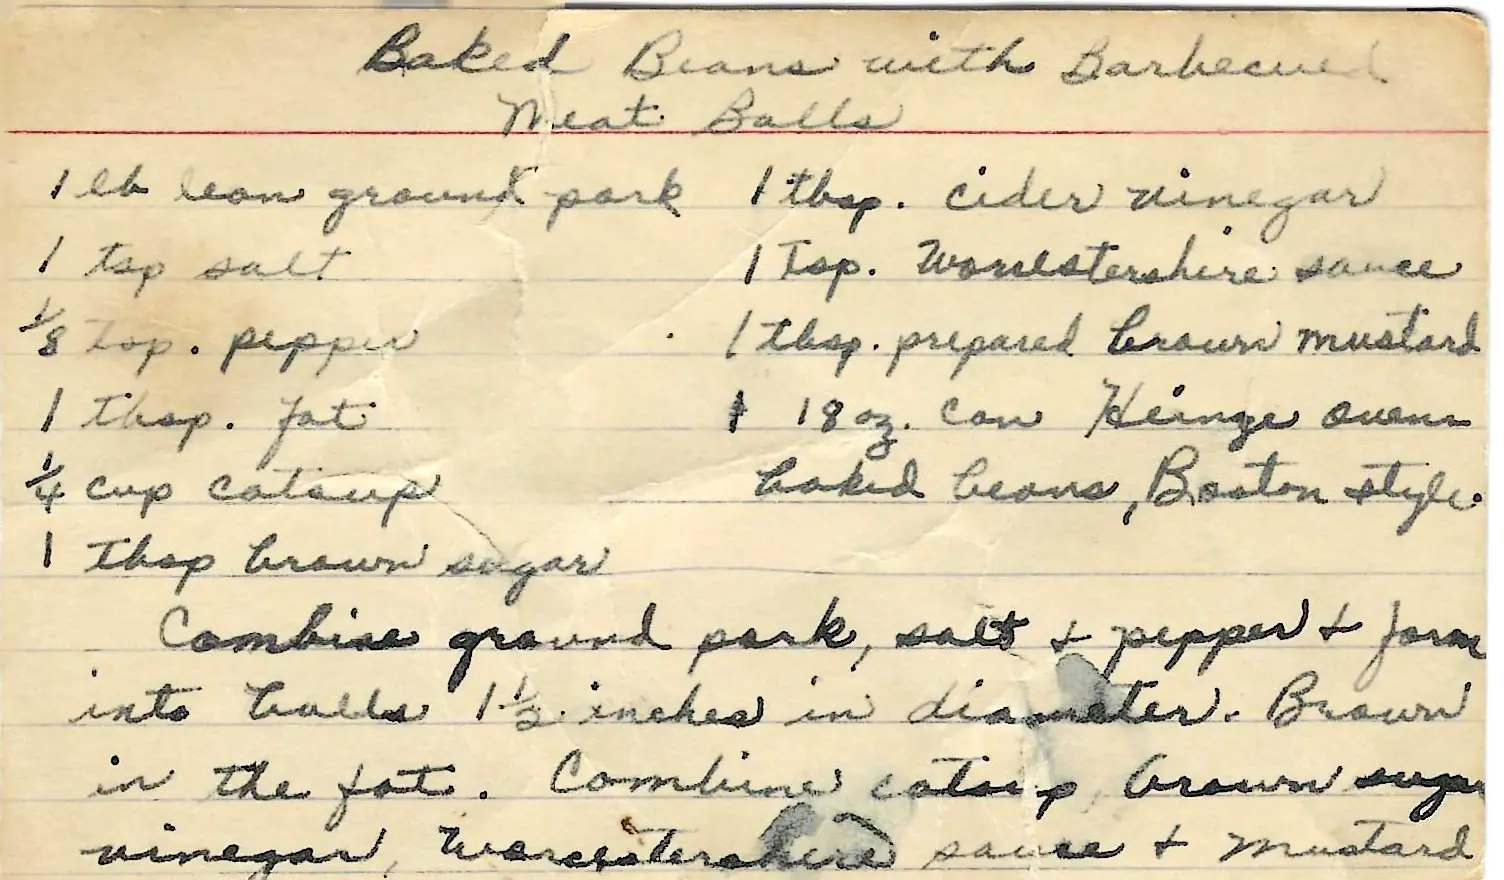 Baked Beans with Barbecued
Meat Balls
1 lb lean ground pork
1 tsp salt
1/8 tsp. pepper
1 tbsp. fat
1/4 cup catsup
1 tbsp brown sugar
1 tbsp. cider vinegar
1 Tsp. Worcestershire sauce
1 tbsp. prepared brown mustard
1 18 oz. can Heinze oven
baked beans, Boston style.
Combine ground pork, salt + pepper + form
into balls 1 1/2 inches in diameter. Brown
in the fat. Combine catsup, brown sugar
vinegar, Worcestershire sauce + mustard